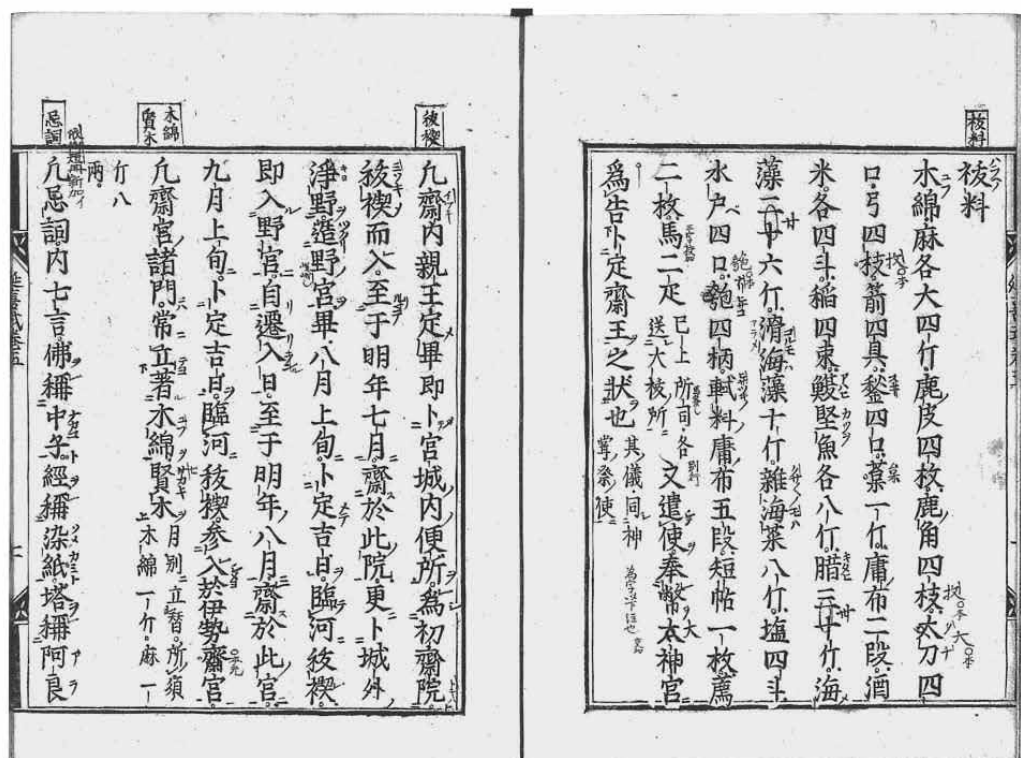 祓料
祓料
木綿麻各大四斤鹿皮四枚鹿角四枝太刀四
口弓四枝箭四具鍬四口葉一斤庸布二段酒
米各四斗稲四束鰒堅魚各八斤腊三十斤海
藻二十六斤滑海藻十斤雑海菜八斤塩四斗
水戸四口匏四柄軾料庸布五段短帖一枚薦
二枚馬二疋
已上所司各
送大祓所
又遣使奉幣大神宮
為告卜定斎王之状也
其儀同神
嘗祭使
祓禊
凡斎内親王定畢即卜宮城内便所為初斎院
祓禊而入至于明年七月斎於此院更卜城外
浄野造野宮畢八月上旬卜定吉日臨河祓禊
即入野宮自遷入日至于明年八月斎於此宮
九月上旬卜定吉日臨河祓禊参入於伊勢斎宮
木綿
賢木
凡斎宮諸門常立著木綿賢木
月別立替所須
木綿一斤麻一
斤八
両
忌詞
凡忌詞内七言仏称中子経称染紙塔称阿良